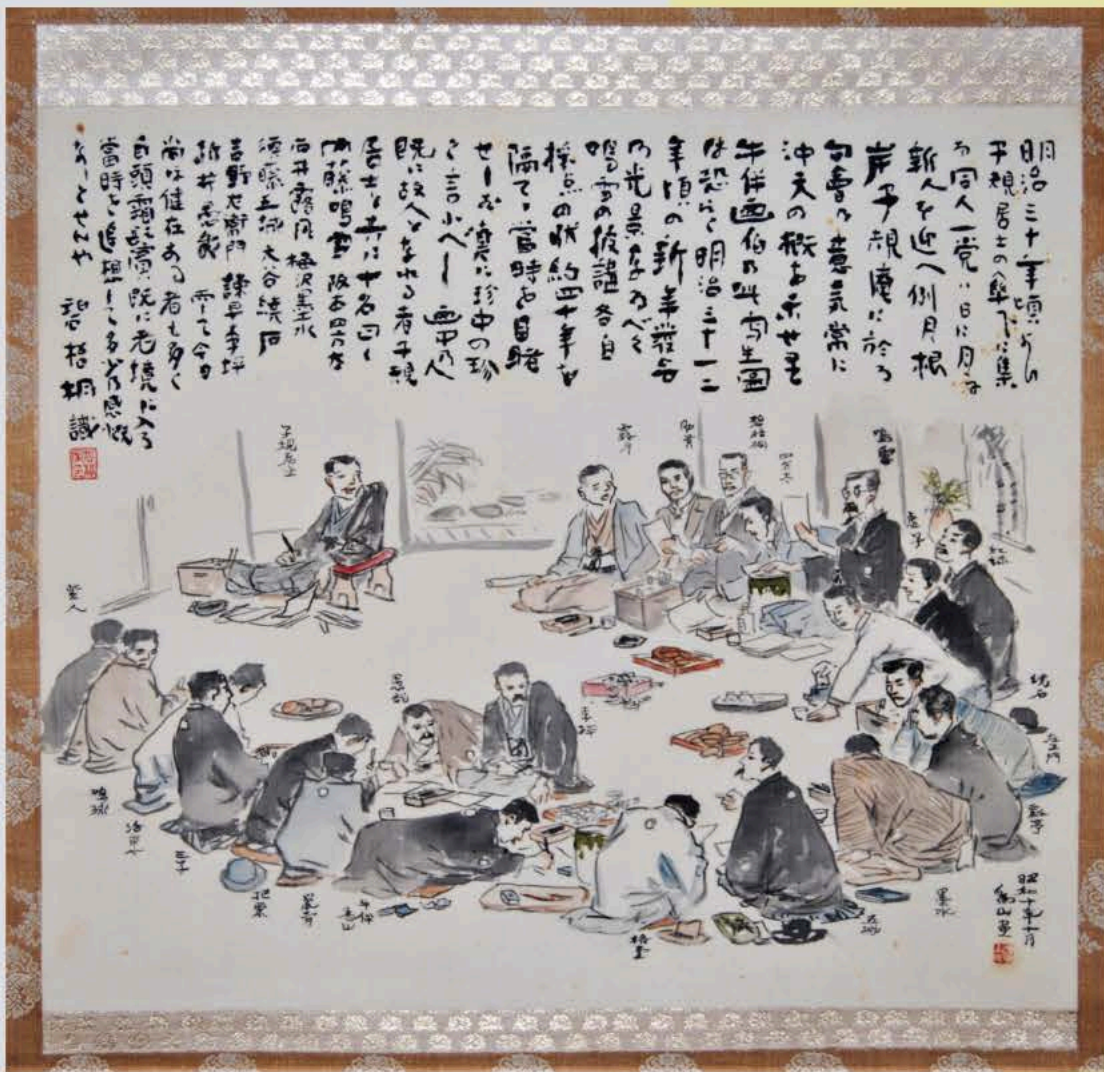 明治三十年頃より
子規居士の傘下に集
る同人一党は日に月に
新人を迎へ例月根
岸子規庵に於る
句会の意気常に
沖天の概あ
牛伴画伯の此写生図
は恐らく明治三十一二
年頃の新年発会
の光景なるべく
鳴雪の披講各自
採点の状約四十年を
隔てゝ当時を目睹
せしむ実に珍中の珍
と言ふべし 画中の人
既に故人となれる者子規
居士と共に十名曰く
内藤鳴雪 阪本四方太
石井露月 梅沢墨水
須藤五城 大谷繞石
吉野左衛門 諫早李坪
新井愚哉 而て今日
尚ほ健在ある者も多く
白頭霜髯既に老境に入る
当時を追想して多少の感慨
なしとせんや 碧梧桐識
子規居士
露月
肋骨
碧梧桐
四方太
鳴雪
虚子
繞石
左衛門
墨水
五城
格堂
牛伴
為山
把栗
三子
鳴球
紫人
愚哉
李坪
昭和十年十月
為山画